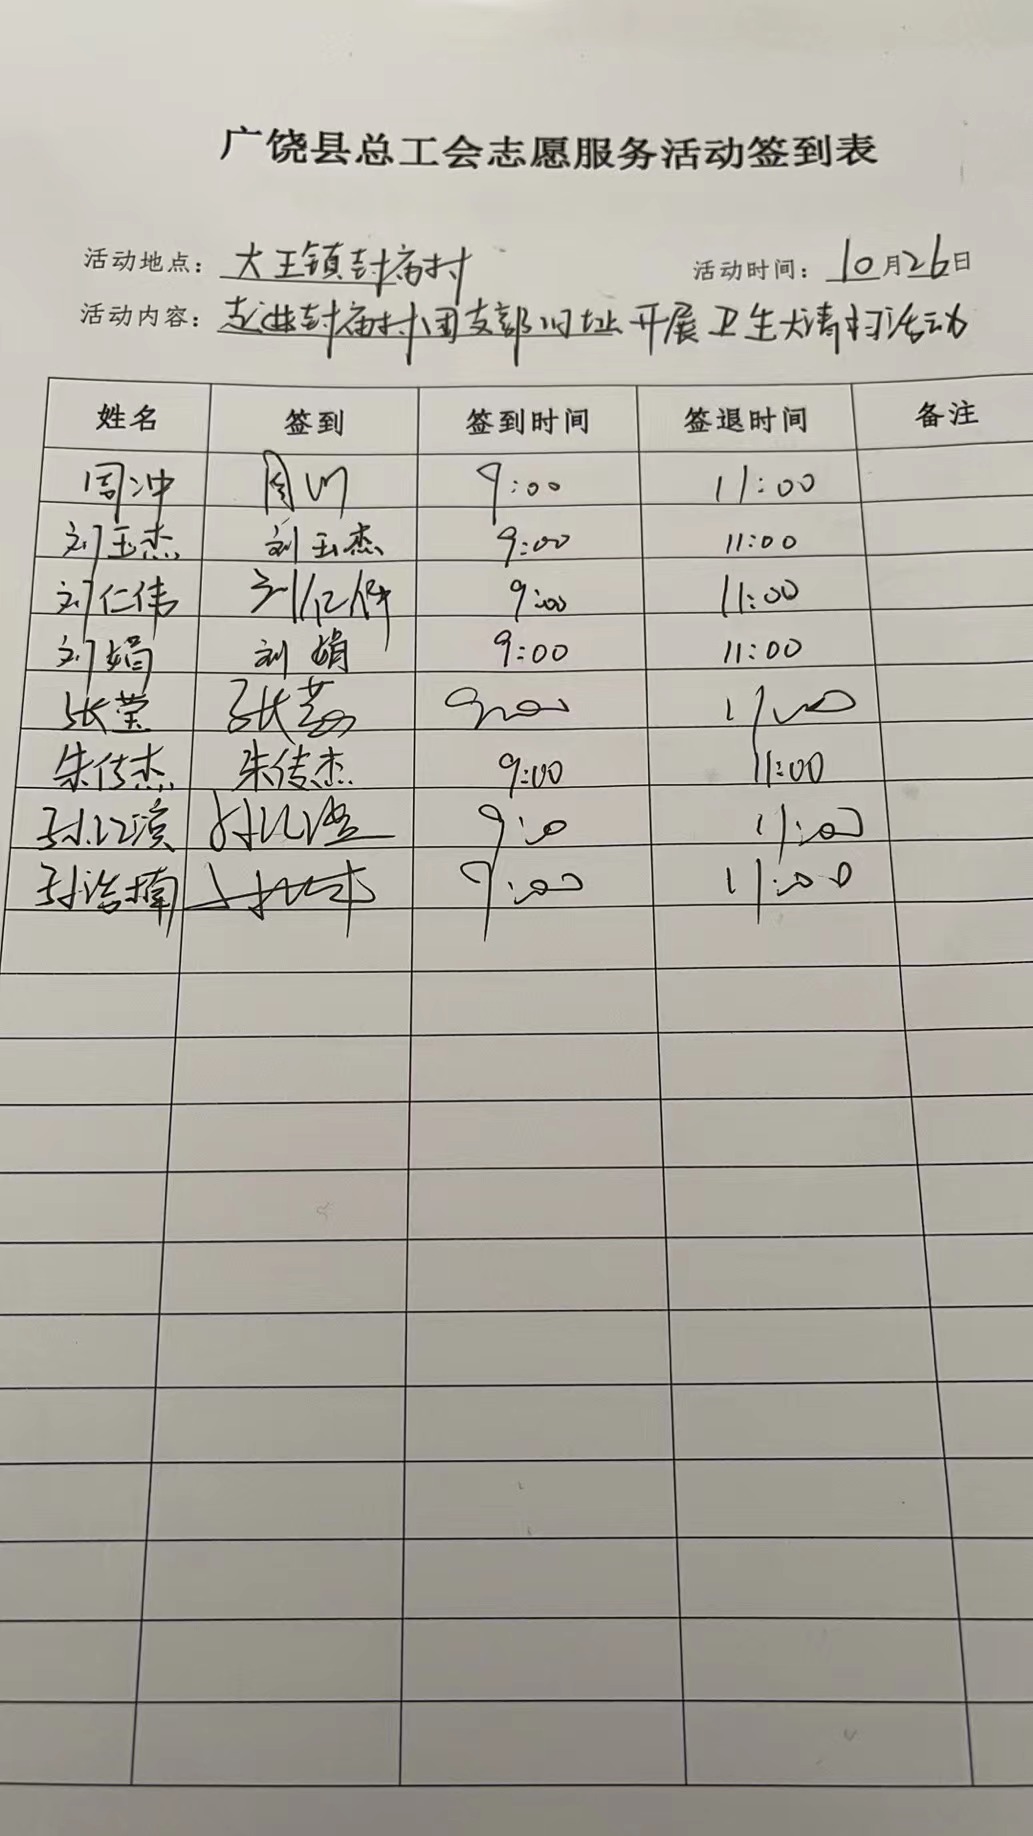 广饶县总工会志愿服务活动签到表
活动地点：大王镇封庙村 活动时间：10月26日
活动内容：走进封庙村团支部旧址开展卫生大清扫活动
姓名 签到 签到时间 签退时间 备注
周冲 周冲 9:00 11:00
刘玉杰 刘玉杰 9:00 11:00
刘仁伟 刘仁伟 9:00 11:00
刘娟 刘娟 9:00 11:00
张莹 张莹 9:00 11:00
朱传杰 朱传杰 9:00 11:00
9:0 11:00
孙浩楠 9:00 11:00